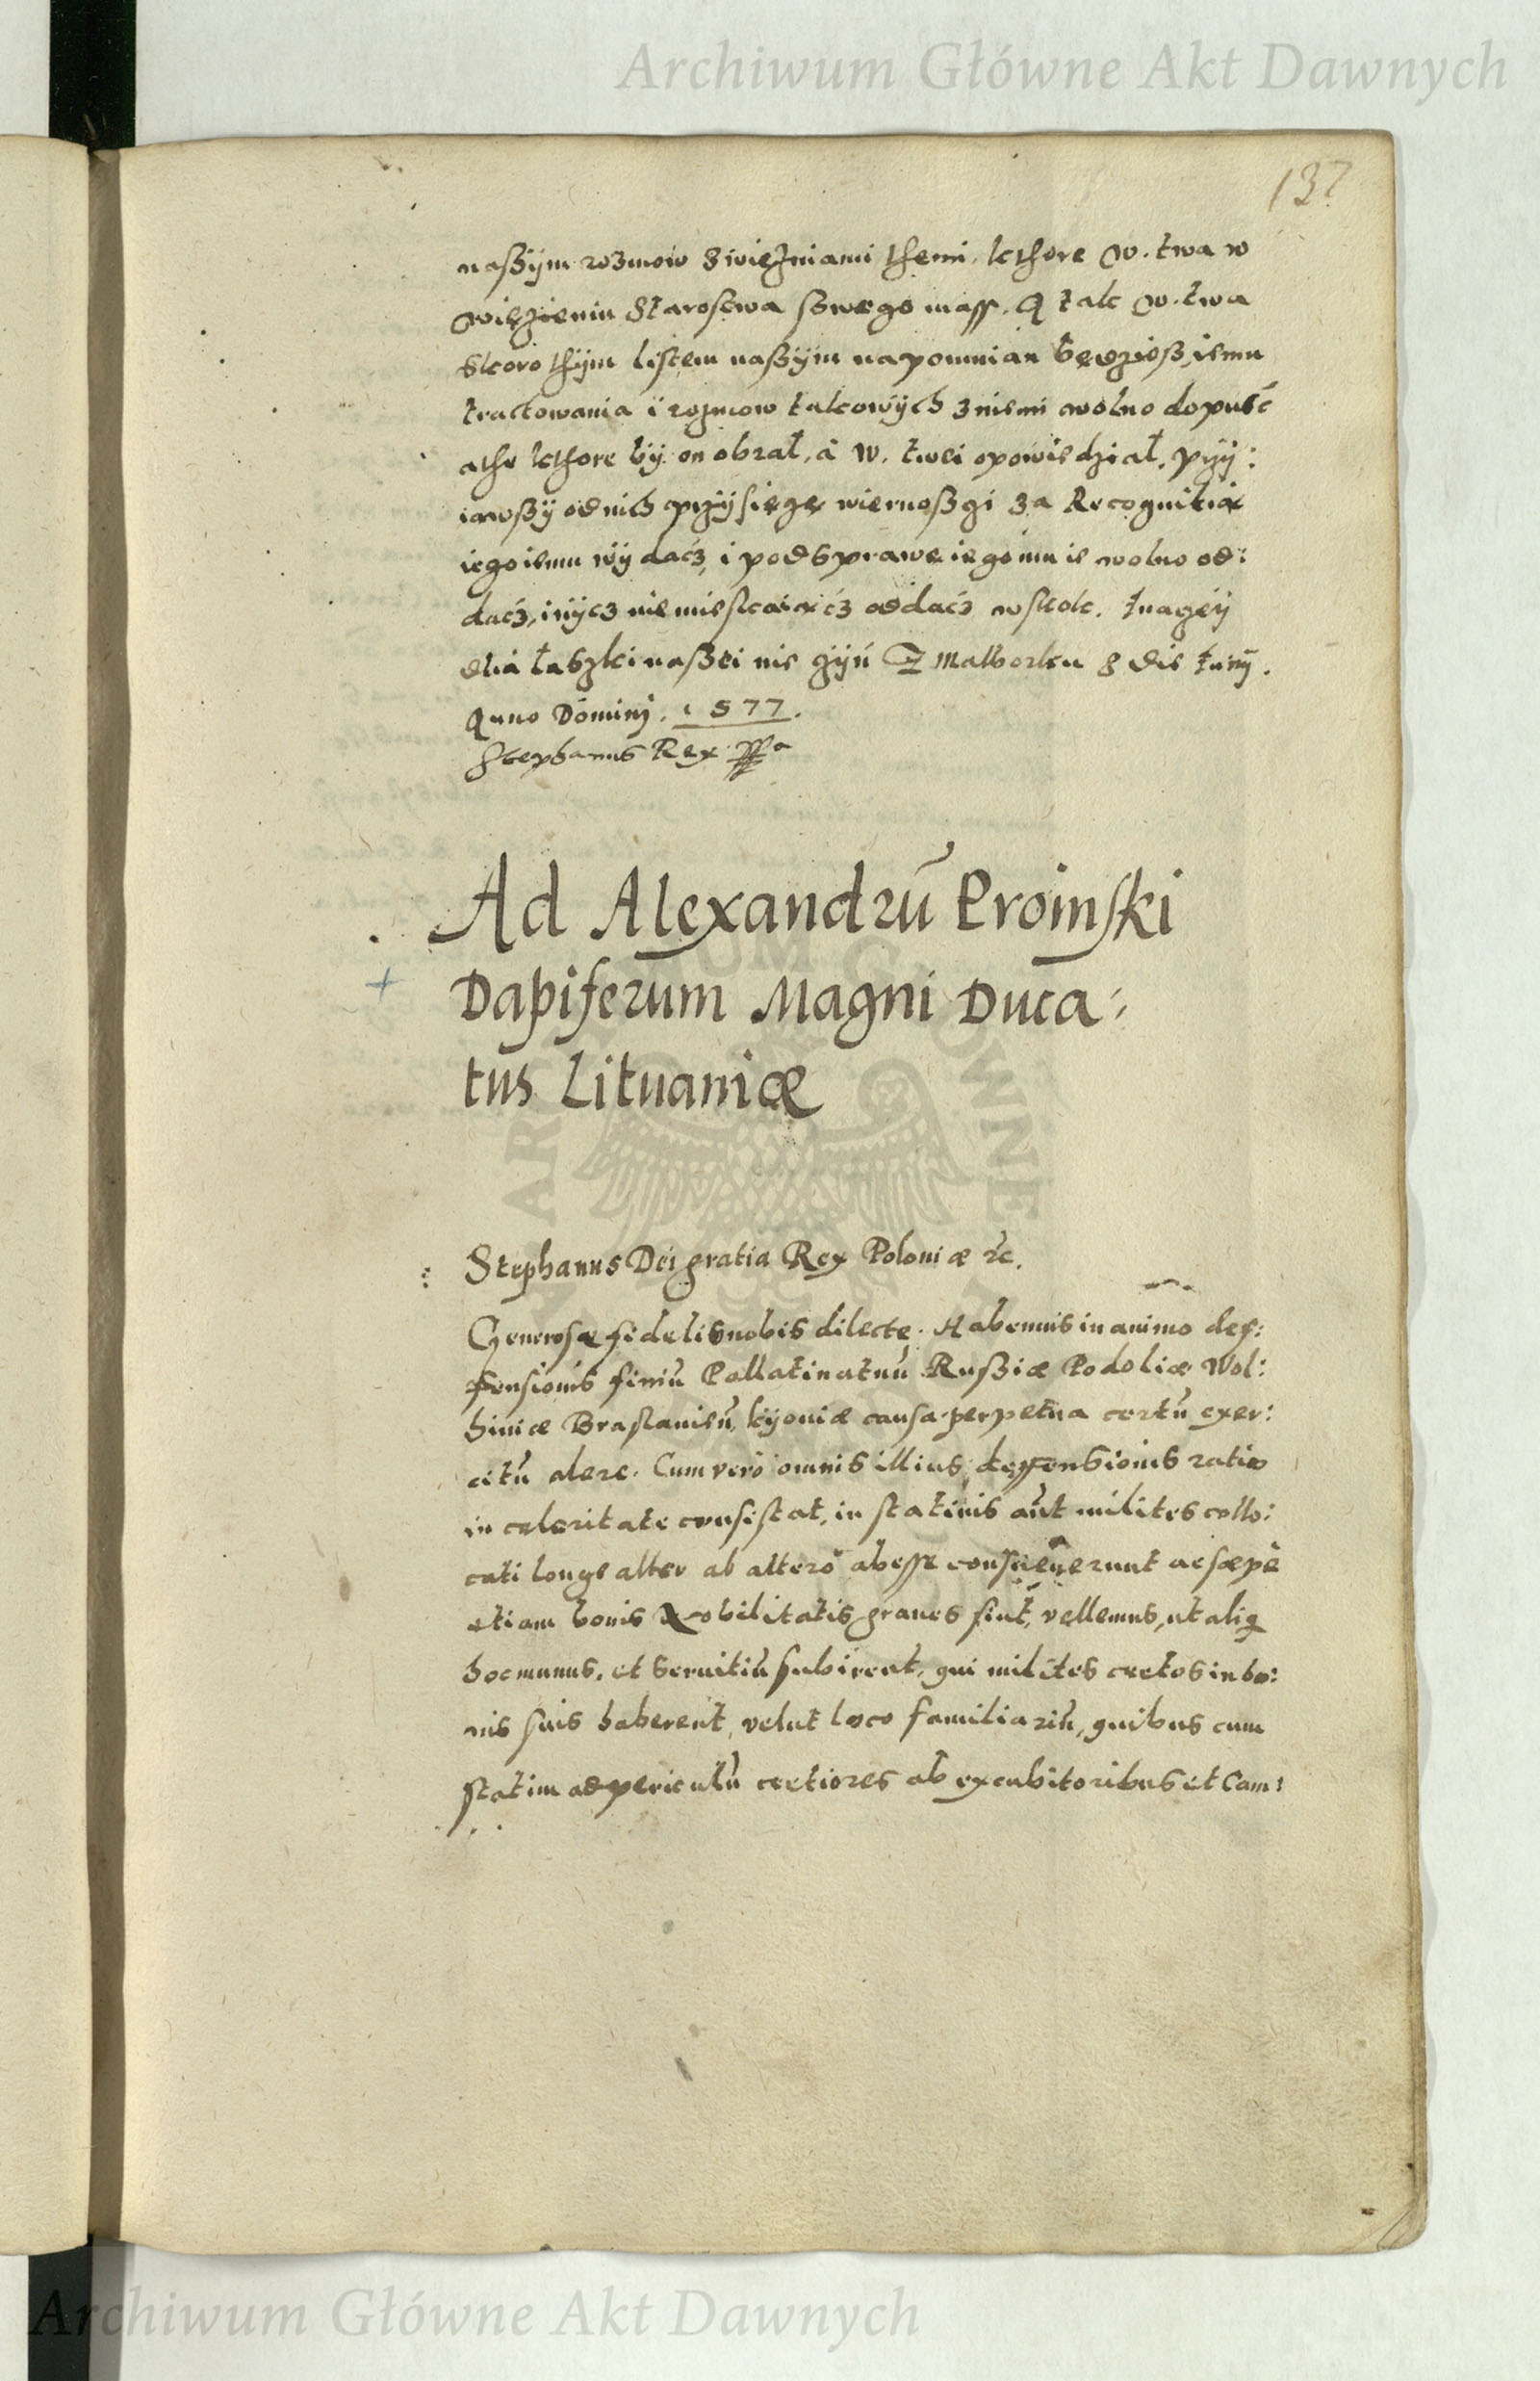 Archiwum Główne Akt Dawnych
137
naßÿm rozmow z więzniami themi, kthore W. twa w
więzieniu Starostwa swego mass. A tak W. twa
skoro thÿm listem naßÿm napomnian będzieß, iemu
tractowania i rozmow takowÿch z niemi wolno dopuść
a the kthore bÿ on obrał, a W. twei opowiedział, przÿ:
iawßÿ od nich przÿsięgę wiernoßgi za Recognitią
iego iemu wÿ dacz, i pod sprawę iego mu ie wolno od:
dacz, inÿcz nie mieskaiącz oddacz wskok. Inaczÿ
dla łaszki naßei nie czÿń Z Malborku 8 die Iunÿ.
Anno Dominj. 1577.
Stephanus Rex ppa
Ad Alexandrū Proinski
Dapiferum Magni Duca:
tus Lituaniæ
Stephanus Dei gratia Rex Poloniæ rc.
Generose fidelis nobis dilecte. Habemus in animo def:
fensionis finiū Pallatinatuū Rußiæ Podoliæ Wol:
hiniæ Braslauien̄, kÿouiæ causa perpetua certū exer:
citū alere. Cum vero omnis illius deffensionis ratio
in celeritate consistat, in statiuis aūt milites collo:
cati longe alter ab altero abesse consueuerunt ac sæpe
etiam bonis Nobilitatis graues sint, vellemus, ut aliq
hoc munus, et seruitiū subirent, qui milites certos in bo:
nis suis haberent, velut loco familiariū, quibus cum
statim ad periculū certiores ab excubitoribus et Cam:
Archiwum Główne Akt Dawnych